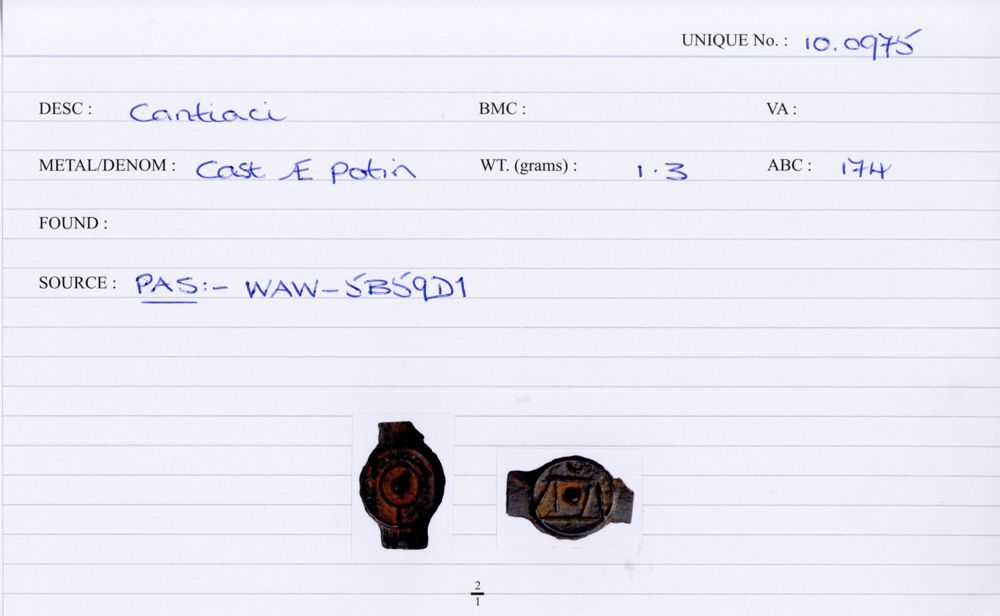 UNIQUE No. : 10.0975
DESC : Cantiaci BMC : VA :
METAL/DENOM : Cast Æ Potin WT. (grams) : 1.3 ABC : 174
FOUND :
SOURCE : PAS:- WAW-5B59D1
2
1